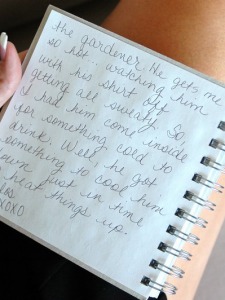 the gardener. He gets me
so hot... watching him
with his shirt off
getting all sweaty. So,
I had him come inside
for something cold to
drink. Well, he got
something to cool him
down just in time
heat things up.
XOXO